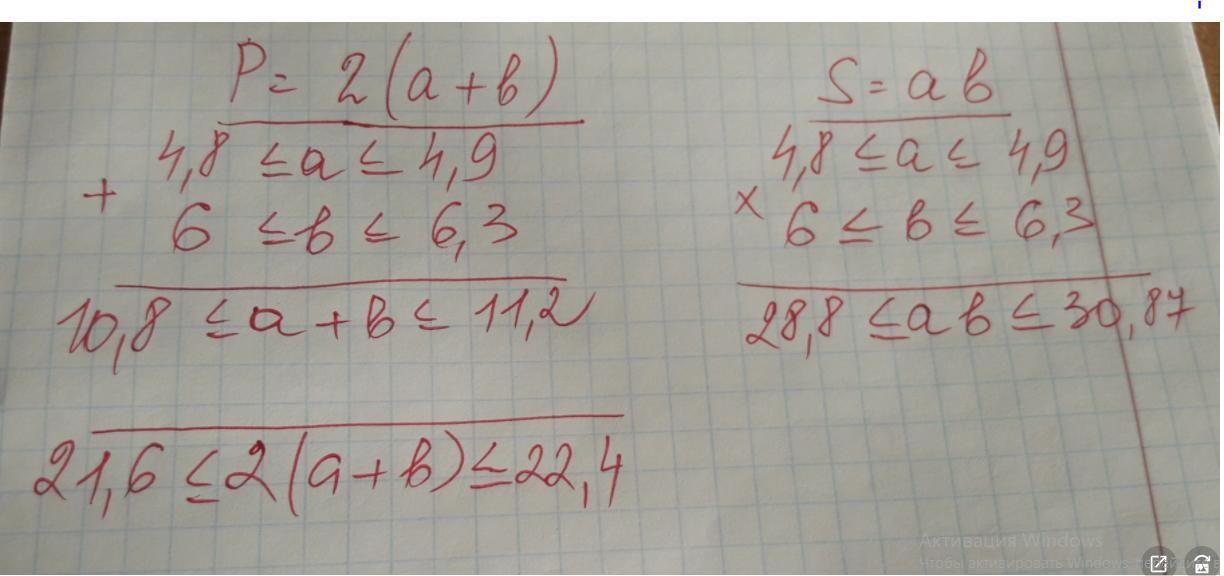 P = 2(a+b)
4,8 ≤ a ≤ 4,9
+
6 ≤ b ≤ 6,3
10,8 ≤ a + b ≤ 11,2
21,6 ≤ 2(a+b) ≤ 22,4
S = ab
4,8 ≤ a ≤ 4,9
×
6 ≤ b ≤ 6,3
28,8 ≤ ab ≤ 30,87
Активация Windows
Чтобы активировать Windows, перейдите в